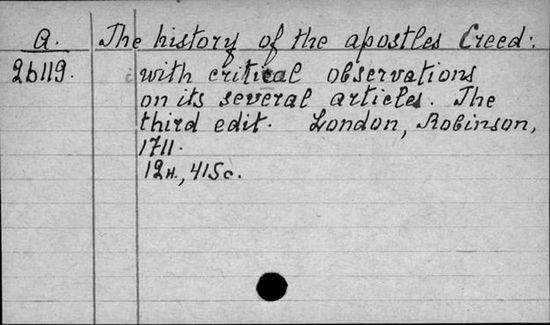 a. The history of the apostles Creed:
26119. with critical observations
on its several articles. The
third edit. London, Robinson,
1711.
12н., 415с.